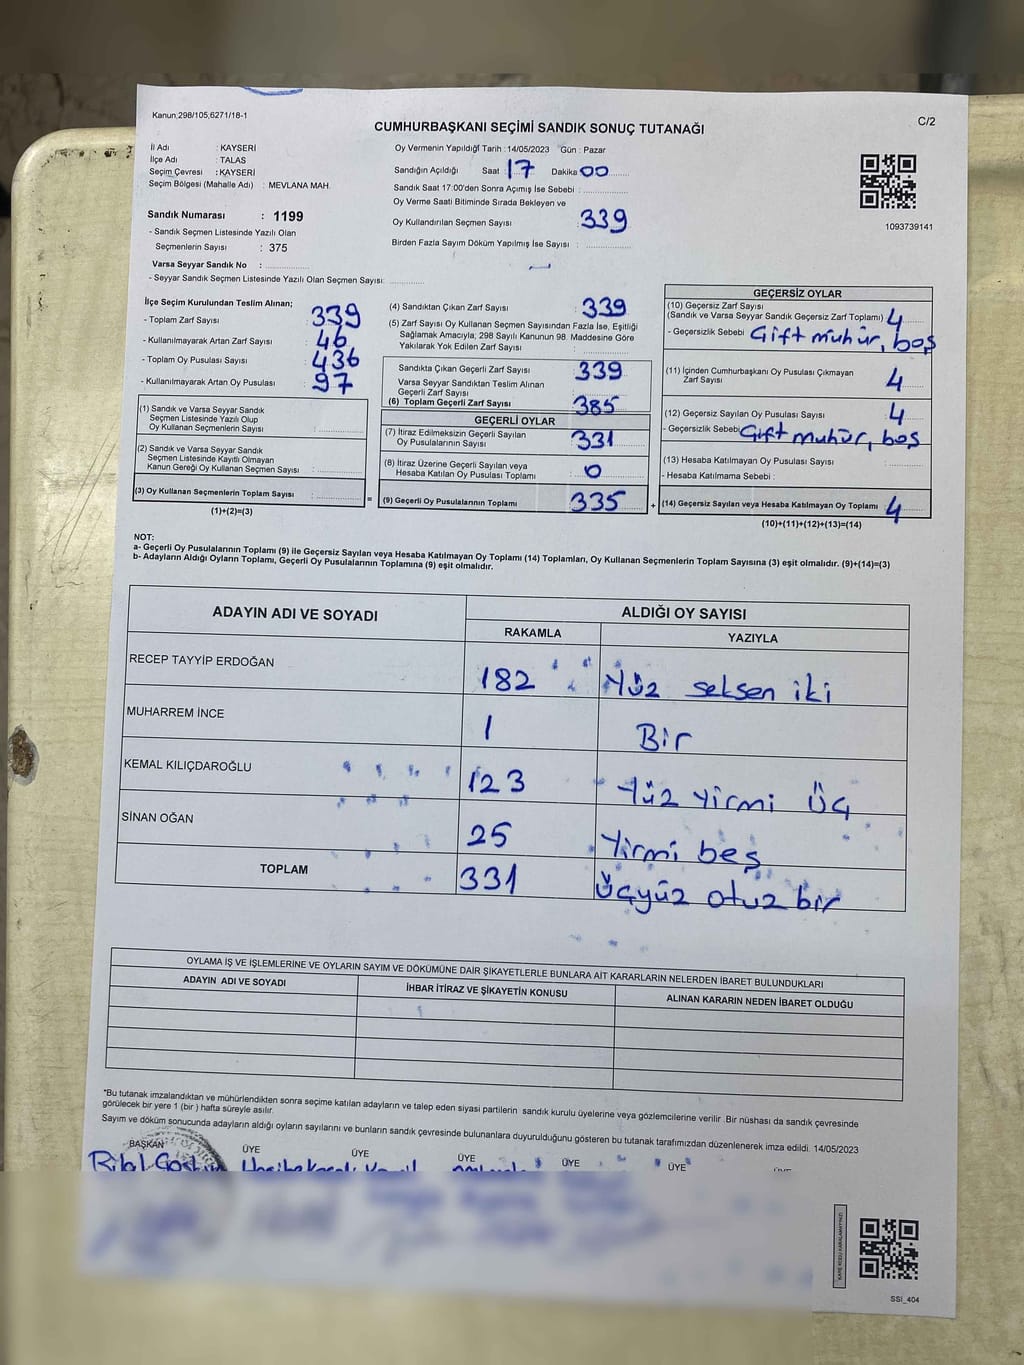 Kanun;298/105,6271/18-1
C/2
CUMHURBAŞKANI SEÇİMİ SANDIK SONUÇ TUTANAĞI
İl Adı : KAYSERİ
İlçe Adı : TALAS
Seçim Çevresi : KAYSERİ
Seçim Bölgesi (Mahalle Adı) : MEVLANA MAH.
Sandık Numarası : 1199
- Sandık Seçmen Listesinde Yazılı Olan
Seçmenlerin Sayısı : 375
Varsa Seyyar Sandık No :
- Seyyar Sandık Seçmen Listesinde Yazılı Olan Seçmen Sayısı:
Oy Vermenin Yapıldığı Tarih : 14/05/2023 Gün : Pazar
Sandığın Açıldığı Saat : 17 Dakika 00
Sandık Saat 17:00'den Sonra Açımış İse Sebebi :
Oy Verme Saati Bitiminde Sırada Bekleyen ve
Oy Kullandırılan Seçmen Sayısı : 339
Birden Fazla Sayım Döküm Yapılmış İse Sayısı :
1093739141
İlçe Seçim Kurulundan Teslim Alınan;
- Toplam Zarf Sayısı : 339
- Kullanılmayarak Artan Zarf Sayısı : 46
- Toplam Oy Pusulası Sayısı : 436
- Kullanılmayarak Artan Oy Pusulası : 97
(1) Sandık ve Varsa Seyyar Sandık
Seçmen Listesinde Yazılı Olup
Oy Kullanan Seçmenlerin Sayısı :
(2) Sandık ve Varsa Seyyar Sandık
Seçmen Listesinde Kayıtlı Olmayan
Kanun Gereği Oy Kullanan Seçmen Sayısı :
(3) Oy Kullanan Seçmenlerin Toplam Sayısı :
(1)+(2)=(3)
=
(4) Sandıktan Çıkan Zarf Sayısı : 339
(5) Zarf Sayısı Oy Kullanan Seçmen Sayısından Fazla İse, Eşitliği
Sağlamak Amacıyla, 298 Sayılı Kanunun 98. Maddesine Göre
Yakılarak Yok Edilen Zarf Sayısı :
Sandıkta Çıkan Geçerli Zarf Sayısı : 339
Varsa Seyyar Sandıktan Teslim Alınan
Geçerli Zarf Sayısı :
(6) Toplam Geçerli Zarf Sayısı : 385
GEÇERLİ OYLAR
(7) İtiraz Edilmeksizin Geçerli Sayılan
Oy Pusulalarının Sayısı : 331
(8) İtiraz Üzerine Geçerli Sayılan veya
Hesaba Katılan Oy Pusulası Toplamı : 0
(9) Geçerli Oy Pusulalarının Toplamı : 335
+
GEÇERSİZ OYLAR
(10) Geçersiz Zarf Sayısı
(Sandık ve Varsa Seyyar Sandık Geçersiz Zarf Toplamı) : 4
- Geçersizlik Sebebi : Çift mühür, boş
(11) İçinden Cumhurbaşkanı Oy Pusulası Çıkmayan
Zarf Sayısı : 4
(12) Geçersiz Sayılan Oy Pusulası Sayısı : 4
- Geçersizlik Sebebi : Çift mühür, boş
(13) Hesaba Katılmayan Oy Pusulası Sayısı :
- Hesaba Katılmama Sebebi :
(14) Geçersiz Sayılan veya Hesaba Katılmayan Oy Toplamı : 4
(10)+(11)+(12)+(13)=(14)
NOT:
a- Geçerli Oy Pusulalarının Toplamı (9) ile Geçersiz Sayılan veya Hesaba Katılmayan Oy Toplamı (14) Toplamları, Oy Kullanan Seçmenlerin Toplam Sayısına (3) eşit olmalıdır. (9)+(14)=(3)
b- Adayların Aldığı Oyların Toplamı, Geçerli Oy Pusulalarının Toplamına (9) eşit olmalıdır.
ADAYIN ADI VE SOYADI
ALDIĞI OY SAYISI
RAKAMLA YAZIYLA
RECEP TAYYİP ERDOĞAN 182 Yüz seksen iki
MUHARREM İNCE 1 Bir
KEMAL KILIÇDAROĞLU 123 Yüz Yirmi Üç
SİNAN OĞAN 25 Yirmi beş
TOPLAM 331 Üçyüz otuz bir
OYLAMA İŞ VE İŞLEMLERİNE VE OYLARIN SAYIM VE DÖKÜMÜNE DAİR ŞİKAYETLERLE BUNLARA AİT KARARLARIN NELERDEN İBARET BULUNDUKLARI
ADAYIN ADI VE SOYADI İHBAR İTİRAZ VE ŞİKAYETİN KONUSU ALINAN KARARIN NEDEN İBARET OLDUĞU
*Bu tutanak imzalandıktan ve mühürlendikten sonra seçime katılan adayların ve talep eden siyasi partilerin sandık kurulu üyelerine veya gözlemcilerine verilir .Bir nüshası da sandık çevresinde
görülecek bir yere 1 (bir ) hafta süreyle asılır.
Sayım ve döküm sonucunda adayların aldığı oyların sayılarını ve bunların sandık çevresinde bulunanlara duyurulduğunu gösteren bu tutanak tarafımızdan düzenlenerek imza edildi. 14/05/2023
BAŞKAN ÜYE ÜYE ÜYE ÜYE ÜYE
SSİ_404